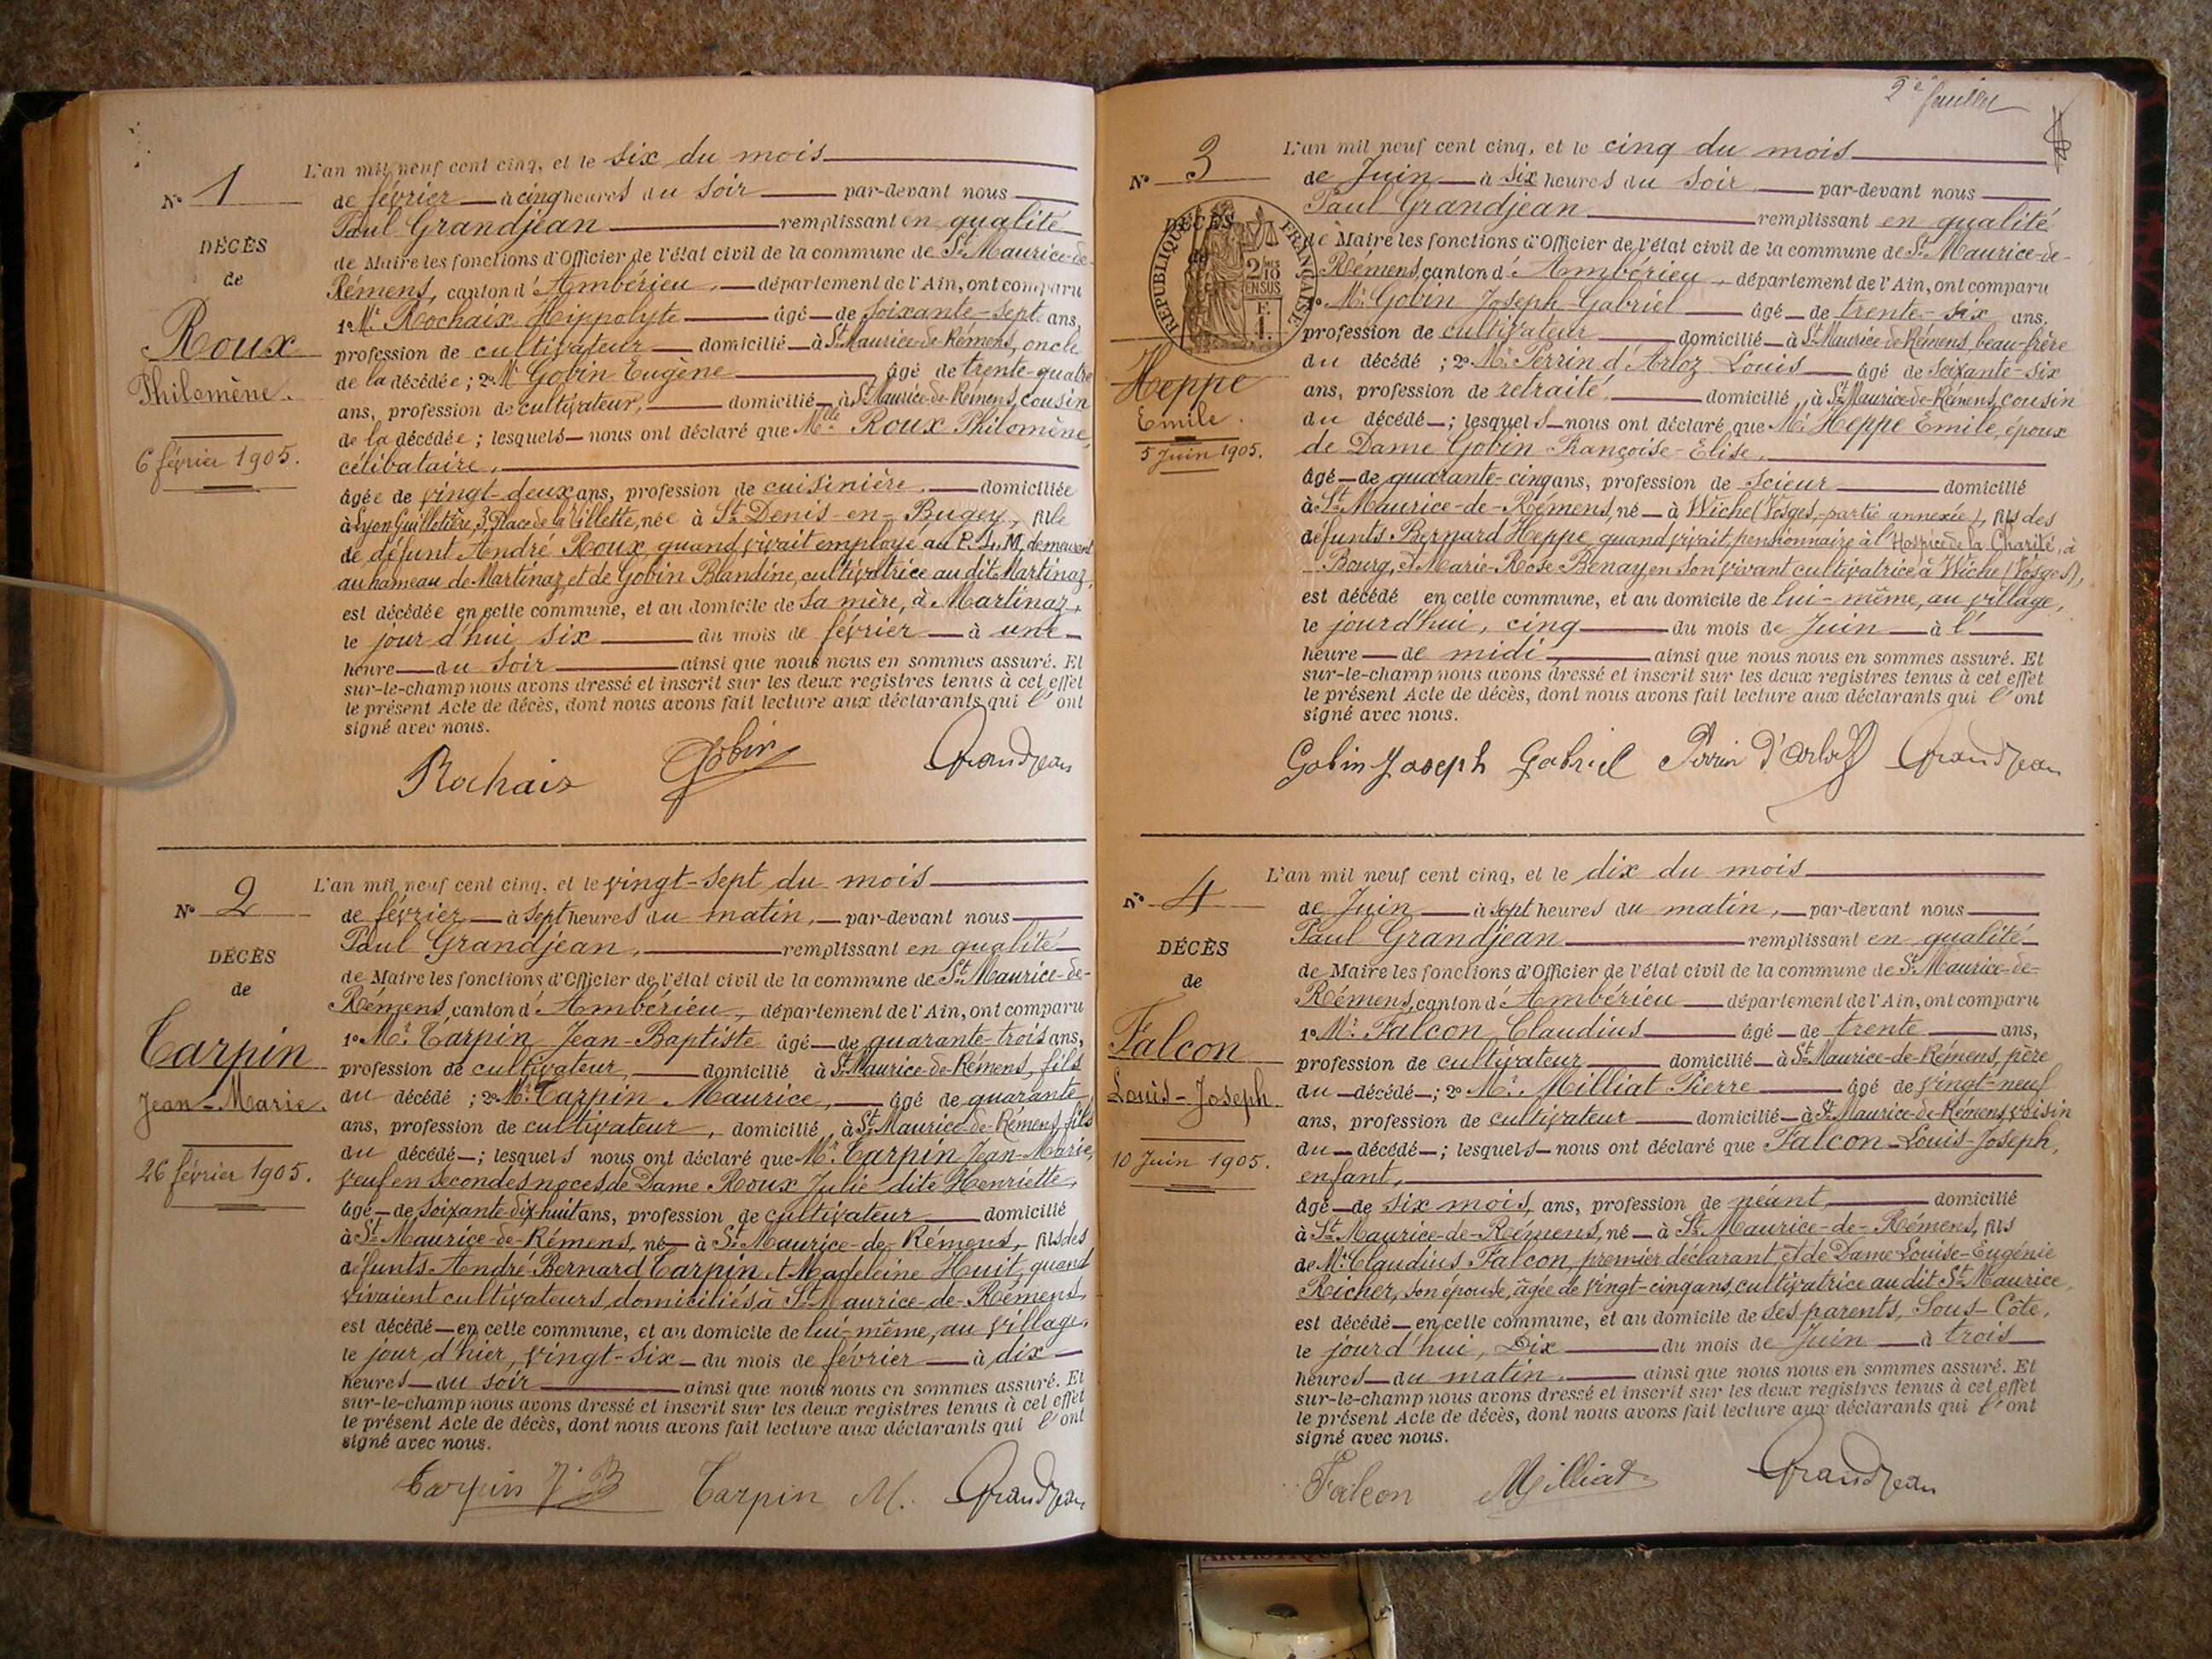 Nº 1
DÉCÈS
de
Roux
Philomène.
6 février 1905.
L'an mil neuf cent cinq, et le six du mois
de février à cinq heures du soir par-devant nous
Paul Grandjean remplissant en qualité
de Maire les fonctions d'Officier de l'état civil de la commune de St Maurice-de-
Rémens, canton d'Ambérieu, département de l'Ain, ont comparu
1º Mr Rochaix Hippolyte âgé de soixante-sept ans,
profession de cultivateur domicilié à St Maurice-de-Rémens, oncle
de la décédée ; 2º Mr Gobin Eugène âgé de trente-quatre
ans, profession de cultivateur, domicilié à St Maurice-de-Rémens, cousin
de la décédée ; lesquels nous ont déclaré que Mlle Roux Philomène,
célibataire,
âgée de vingt-deux ans, profession de cuisinière. domiciliée
à Lyon Guillotière, 3, Place de la Villette, née à St Denis-en-Bugey, fille
de défunt André Roux, quand vivait employé au P. L. M, demeurant
au hameau de Martinaz, et de Gobin Blandine, cultivatrice au dit Martinaz,
est décédée en cette commune, et au domicile de sa mère, à Martinaz,
le jour d'hui six du mois de février à une
heure du soir ainsi que nous nous en sommes assuré. Et
sur-le-champ nous avons dressé et inscrit sur les deux registres tenus à cet effet
le présent Acte de décès, dont nous avons fait lecture aux déclarants qui l'ont
signé avec nous.
Rochaix Gobin Grandjean
Nº 2
DÉCÈS
de
Carpin
Jean-Marie.
26 février 1905.
L'an mil neuf cent cinq, et le vingt-sept du mois
de février à sept heures du matin, par-devant nous
Paul Grandjean, remplissant en qualité
de Maire les fonctions d'Officier de l'état civil de la commune de St Maurice-de-
Rémens, canton d'Ambérieu, département de l'Ain, ont comparu
1º Mr Carpin Jean-Baptiste âgé de quarante-trois ans,
profession de cultivateur, domicilié à St Maurice-de-Rémens, fils
du décédé ; 2º Mr Carpin Maurice, âgé de quarante
ans, profession de cultivateur, domicilié à St Maurice-de-Rémens, fils
du décédé ; lesquels nous ont déclaré que Mr Carpin Jean-Marie,
veuf en secondes noces de Dame Roux Julie dite Henriette,
âgé de soixante-dix-huit ans, profession de cultivateur domicilié
à St Maurice-de-Rémens, né à St Maurice-de-Rémens, fils des
défunts André-Bernard Carpin et Madeleine Huit, quand
vivaient cultivateurs, domiciliés à St Maurice-de-Rémens,
est décédé en cette commune, et au domicile de lui-même, au village,
le jour d'hier, vingt-six du mois de février à dix
heures du soir ainsi que nous nous en sommes assuré. Et
sur-le-champ nous avons dressé et inscrit sur les deux registres tenus à cet effet
le présent Acte de décès, dont nous avons fait lecture aux déclarants qui l'ont
signé avec nous.
Carpin J. B Carpin M. Grandjean
2e feuillet
Nº 3
DÉCÈS
RÉPUBLIQUE FRANÇAISE
Heppe
Emile.
5 Juin 1905.
L'an mil neuf cent cinq, et le cinq du mois
de Juin à six heures du soir par-devant nous
Paul Grandjean remplissant en qualité
de Maire les fonctions d'Officier de l'état civil de la commune de St Maurice-de-
Rémens, canton d'Ambérieu, département de l'Ain, ont comparu
1º Mr Gobin Joseph-Gabriel âgé de trente-six ans.
profession de cultivateur domicilié à St Maurice-de-Rémens, beau-frère
du décédé ; 2º Mr Perrin d'Arloz Louis âgé de soixante-six
ans, profession de retraité domicilié à St Maurice-de-Rémens, cousin
du décédé ; lesquels nous ont déclaré que Mr Heppe Emile, époux
de Dame Gobin Françoise-Elise,
âgé de quarante-cinq ans, profession de scieur domicilié
à St Maurice-de-Rémens, né à Wiche (Vosges, partie annexée), fils des
défunts Bernard Heppe, quand vivait, pensionnaire à l'Hospice de la Charité, à
Bourg, et Marie-Rose Benay en son vivant cultivatrice à Wiche (Vosges),
est décédé en cette commune, et au domicile de lui-même, au village,
le jour d'hui, cinq du mois de Juin à l'
heure de midi ainsi que nous nous en sommes assuré. Et
sur-le-champ nous avons dressé et inscrit sur les deux registres tenus à cet effet
le présent Acte de décès, dont nous avons fait lecture aux déclarants qui l'ont
signé avec nous.
Gobin Joseph Gabriel Perrin d'Arloz Grandjean
Nº 4
DÉCÈS
de
Falcon
Louis-Joseph.
10 Juin 1905.
L'an mil neuf cent cinq, et le dix du mois
de Juin à sept heures du matin, par-devant nous
Paul Grandjean remplissant en qualité
de Maire les fonctions d'Officier de l'état civil de la commune de St Maurice-de-
Rémens, canton d'Ambérieu département de l'Ain, ont comparu
1º Mr Falcon Claudius âgé de trente ans,
profession de cultivateur domicilié à St Maurice-de-Rémens, père
du décédé ; 2º Mr Milliat Pierre âgé de vingt-neuf
ans, profession de cultivateur domicilié à St Maurice-de-Rémens, voisin
du décédé ; lesquels nous ont déclaré que Falcon Louis-Joseph,
enfant,
âgé de six mois, ans, profession de néant, domicilié
à St Maurice-de-Rémens, né à St Maurice-de-Rémens, fils
de Mr Claudius Falcon, premier déclarant, et de Dame Louise-Eugénie
Richer, son épouse, âgée de vingt-cinq ans, cultivatrice au dit St Maurice,
est décédé en cette commune, et au domicile de ses parents, Sous-Côte,
le jour d'hui, Dix du mois de Juin à trois
heures du matin. ainsi que nous nous en sommes assuré. Et
sur-le-champ nous avons dressé et inscrit sur les deux registres tenus à cet effet
le présent Acte de décès, dont nous avons fait lecture aux déclarants qui l'ont
signé avec nous.
Falcon Milliat Grandjean